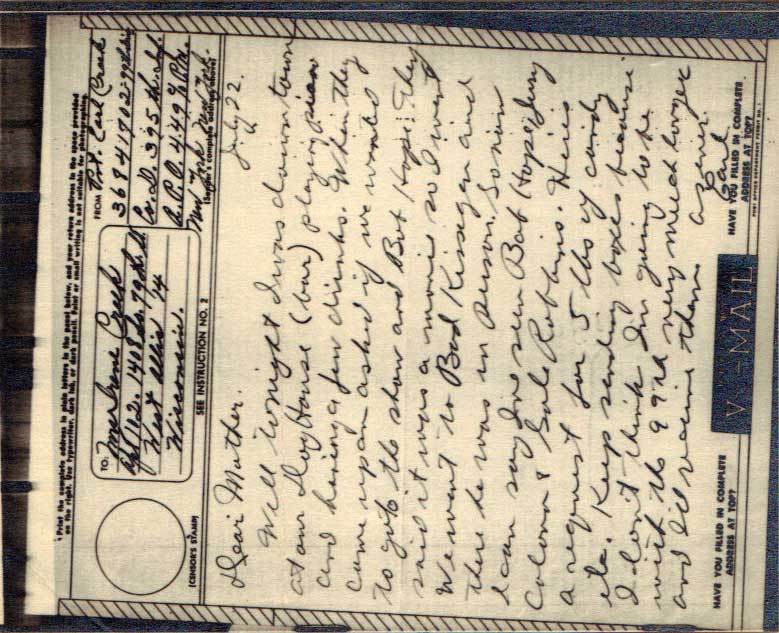 Print the complete address in plain letters in the panel below, and your return address in the space provided
on the right. Use typewriter, dark ink, or dark pencil. Faint or small writing is not suitable for photographing.
TO:
Mrs Irene Creek
Apt 12. 1408 So. 79th St
West Allis 14
Wisconsin.
FROM
Pvt. Earl Creek
36941702-99th Div
Co. D. 395th Inf.
A.P.O. 449 % P.M.
New York New York
(Sender's complete address above)
(CENSOR'S STAMP)
SEE INSTRUCTION NO. 2
July 22.
Dear Mother.
Well tonight I was down town
at our Dog House (bar) playing piano
and having a few drinks. When they
came up an asked if we wanted
to go to the show and Bob Hope. They
said it was a movie so I went
We went to Bad Kissegen and
there he was in person. So now
I can say I've seen Bob Hope, Jerry
Colonna & Gale Robbins. Here's
a request for 5 lbs of candy
etc. Keep sending boxes because
I don't think I'm going to be
with the 99th very much longer
and I'll receive them as ever
Earl
HAVE YOU FILLED IN COMPLETE
ADDRESS AT TOP?
V-MAIL
HAVE YOU FILLED IN COMPLETE
ADDRESS AT TOP?